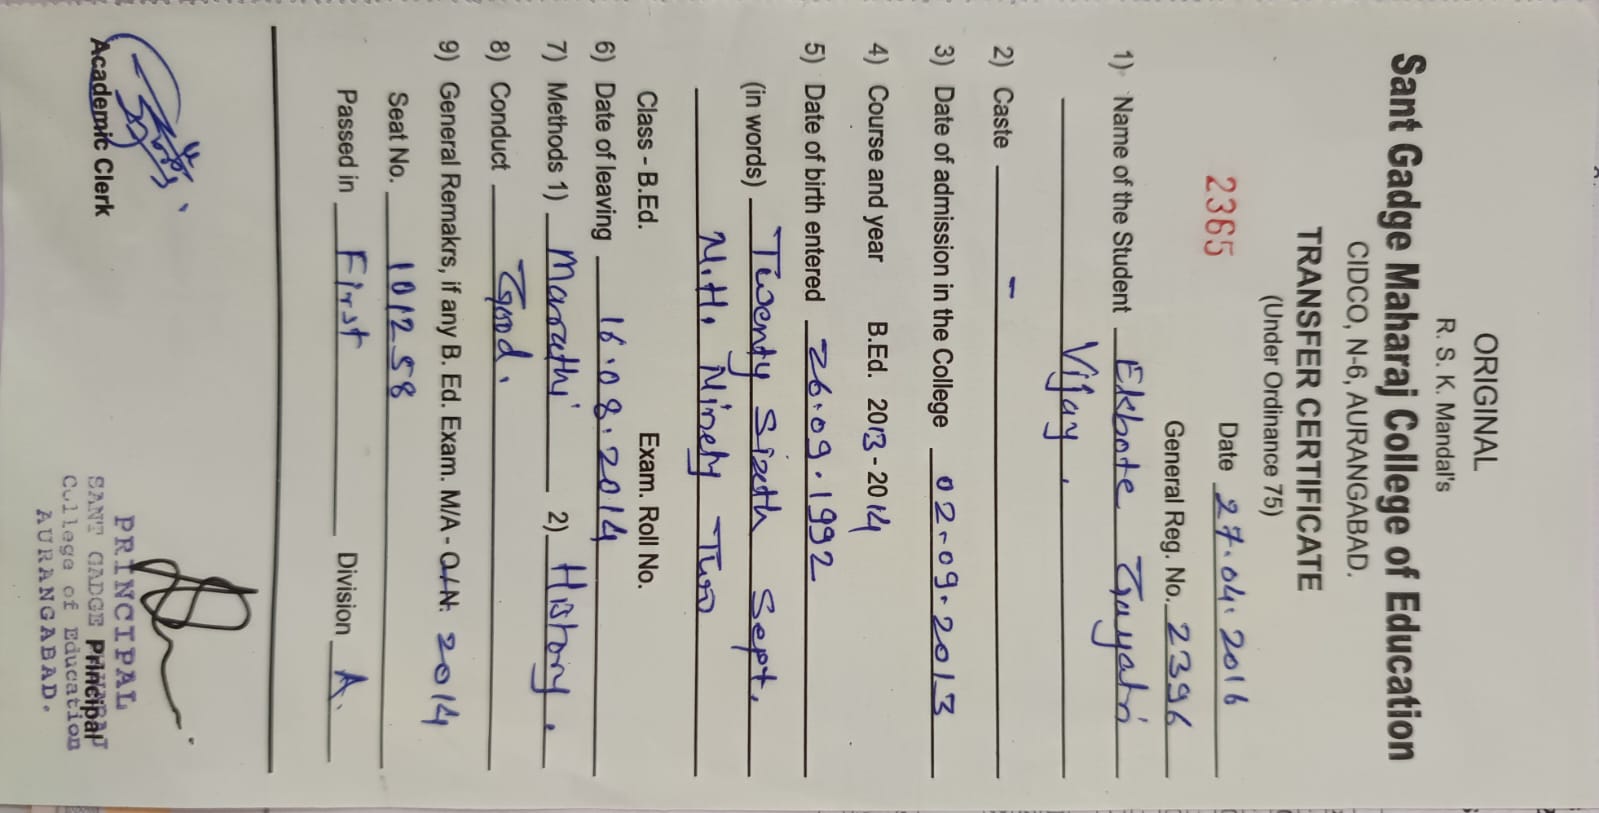 ORIGINAL
R. S. K. Mandal's
Sant Gadge Maharaj College of Education
CIDCO, N-6, AURANGABAD.
TRANSFER CERTIFICATE
(Under Ordinance 75)
2365 Date 27.04.2016
General Reg. No. 2396
1) Name of the Student Ekbote Gayatri
Vijay.
2) Caste -
3) Date of admission in the College 02.09.2013
4) Course and year B.Ed. 2013 - 2014
5) Date of birth entered 26.09.1992
(in words) Twenty Sixth Sept.
N.H. Ninety Two
Class - B.Ed. Exam. Roll No.
6) Date of leaving 16.08.2014
7) Methods 1) Marathi 2) History.
8) Conduct Good.
9) General Remakrs, if any B. Ed. Exam. M/A - O/N. 2014
Seat No. 101258
Passed in First Division A.
Academic Clerk
Principal
PRINCIPAL
SANT GADGE MAHARAJ
College of Education
AURANGABAD.